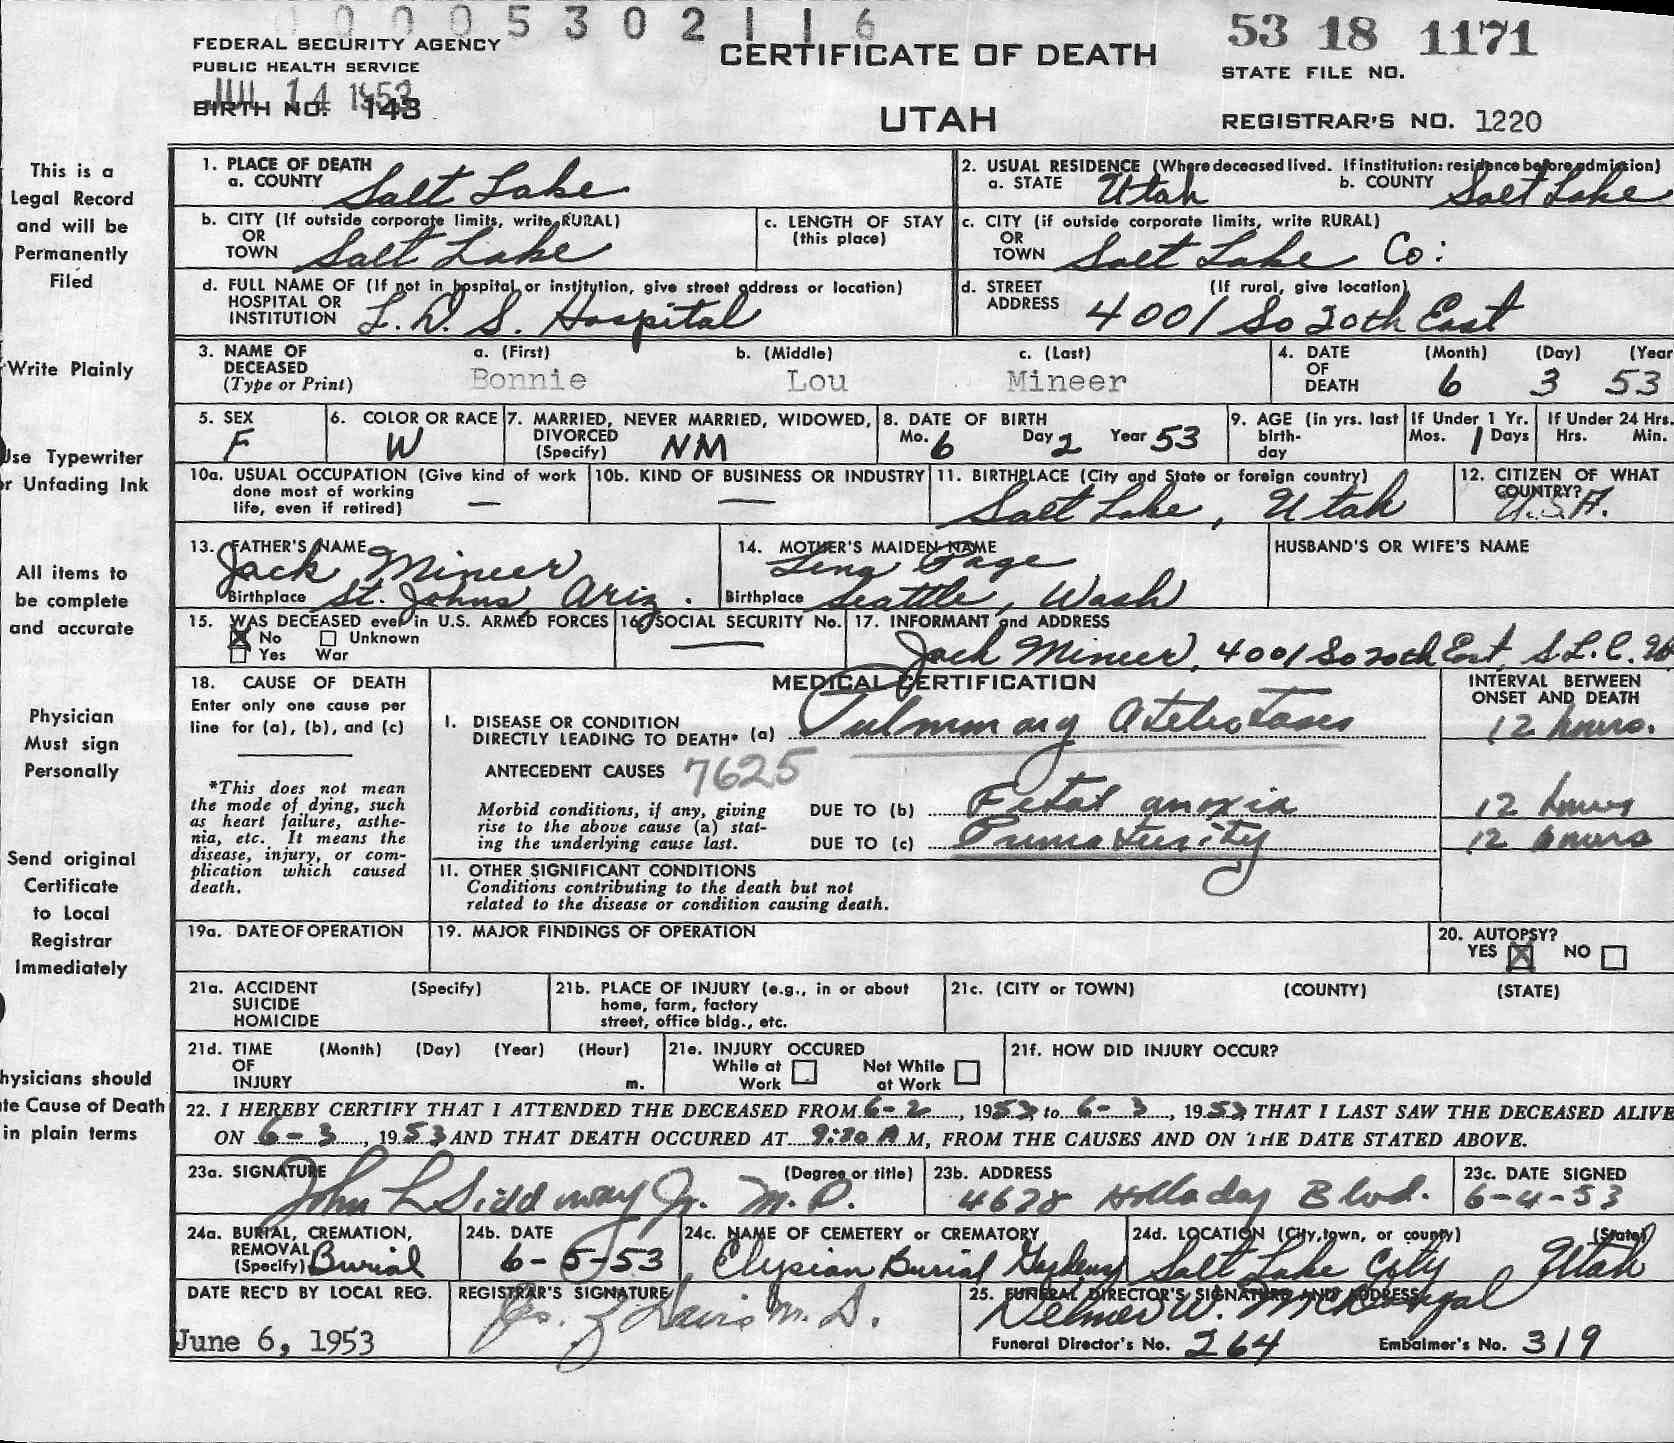 0 0 0 0 5 3 0 2 1 1 6
53 18 1171
FEDERAL SECURITY AGENCY
PUBLIC HEALTH SERVICE
JUL 14 1953
BIRTH NO. 143
CERTIFICATE OF DEATH
UTAH
STATE FILE NO.
REGISTRAR'S NO. 1220
This is a
Legal Record
and will be
Permanently
Filed
Write Plainly
Use Typewriter
or Unfading Ink
All items to
be complete
and accurate
Physician
Must sign
Personally
Send original
Certificate
to Local
Registrar
Immediately
hysicians should
te Cause of Death
in plain terms
1. PLACE OF DEATH
a. COUNTY Salt Lake
2. USUAL RESIDENCE (Where deceased lived. If institution: residence before admission)
a. STATE Utah b. COUNTY Salt Lake
b. CITY (If outside corporate limits, write RURAL)
OR
TOWN Salt Lake
c. LENGTH OF STAY
(this place)
c. CITY (if outside corporate limits, write RURAL)
OR
TOWN Salt Lake Co:
d. FULL NAME OF (If not in hospital or institution, give street address or location)
HOSPITAL OR
INSTITUTION L. D. S. Hospital
d. STREET (If rural, give location)
ADDRESS 4001 So 20th East
3. NAME OF DECEASED (Type or Print)
a. (First) b. (Middle) c. (Last)
Bonnie Lou Mineer
4. DATE OF DEATH (Month) (Day) (Year
6 3 53
5. SEX
F
6. COLOR OR RACE
W
7. MARRIED, NEVER MARRIED, WIDOWED,
DIVORCED
(Specify) NM
8. DATE OF BIRTH
Mo. 6 Day 2 Year 53
9. AGE (in yrs. last
birth-
day
If Under 1 Yr.
Mos. 1 Days
If Under 24 Hrs.
Hrs. Min.
10a. USUAL OCCUPATION (Give kind of work
done most of working
life, even if retired) —
10b. KIND OF BUSINESS OR INDUSTRY
—
11. BIRTHPLACE (City and State or foreign country)
Salt Lake, Utah
12. CITIZEN OF WHAT
COUNTRY?
U.S.A.
13. FATHER'S NAME
Jack Mineer
Birthplace St. Johns, Ariz.
14. MOTHER'S MAIDEN NAME
Lena Page
Birthplace Seattle, Wash
HUSBAND'S OR WIFE'S NAME
15. WAS DECEASED ever in U.S. ARMED FORCES
No Unknown
Yes War
16. SOCIAL SECURITY No.
—
17. INFORMANT and ADDRESS
Jack Mineer, 4001 So 20th East, S.L.C. Ut
18. CAUSE OF DEATH
Enter only one cause per
line for (a), (b), and (c)
*This does not mean
the mode of dying, such
as heart failure, asthe-
nia, etc. It means the
disease, injury, or com-
plication which caused
death.
MEDICAL CERTIFICATION
INTERVAL BETWEEN
ONSET AND DEATH
I. DISEASE OR CONDITION
DIRECTLY LEADING TO DEATH* (a) Pulmonary Atelectases 12 hours.
ANTECEDENT CAUSES 7625
Morbid conditions, if any, giving
rise to the above cause (a) stat-
ing the underlying cause last.
DUE TO (b) Fetal anoxia 12 hours
DUE TO (c) Prematurity 12 hours
11. OTHER SIGNIFICANT CONDITIONS
Conditions contributing to the death but not
related to the disease or condition causing death.
19a. DATE OF OPERATION
19. MAJOR FINDINGS OF OPERATION
20. AUTOPSY?
YES NO
21a. ACCIDENT (Specify)
SUICIDE
HOMICIDE
21b. PLACE OF INJURY (e.g., in or about
home, farm, factory
street, office bldg., etc.
21c. (CITY or TOWN) (COUNTY) (STATE)
21d. TIME (Month) (Day) (Year) (Hour)
OF
INJURY m.
21e. INJURY OCCURED
While at Work
Not While at Work
21f. HOW DID INJURY OCCUR?
22. I HEREBY CERTIFY THAT I ATTENDED THE DECEASED FROM 6-2, 1953 to 6-3, 1953 THAT I LAST SAW THE DECEASED ALIVE
ON 6-3, 1953 AND THAT DEATH OCCURED AT 9:20 A M, FROM THE CAUSES AND ON THE DATE STATED ABOVE.
23a. SIGNATURE (Degree or title)
John L Siddoway Jr. M.D.
23b. ADDRESS
4628 Holladay Blvd.
23c. DATE SIGNED
6-4-53
24a. BURIAL, CREMATION,
REMOVAL
(Specify) Burial
24b. DATE
6-5-53
24c. NAME OF CEMETERY OR CREMATORY
Elysian Burial Gardens
24d. LOCATION (City, town, or county) (State)
Salt Lake City Utah
DATE REC'D BY LOCAL REG.
June 6, 1953
REGISTRAR'S SIGNATURE
M. D.
25. FUNERAL DIRECTOR'S SIGNATURE AND ADDRESS
Delmer W. McDougal
Funeral Director's No. 264 Embalmer's No. 319